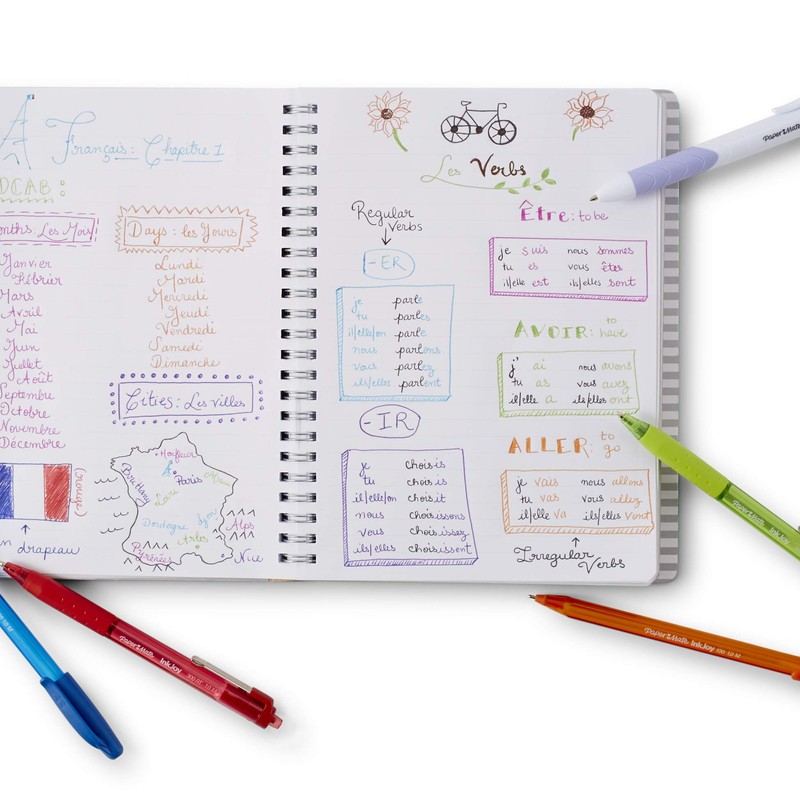 Français: Chapitre 1
OCAB:
onths: Les Mois
Janvier
Février
Mars
Avril
Mai
Juin
Juillet
Août
Septembre
Octobre
Novembre
Décembre
(rouge)
n drapeau
Days: les Jours
Lundi
Mardi
Mercredi
Jeudi
Vendredi
Samedi
Dimanche
Cities: Les Villes
Honfleur
Paris
Brittany
Loire
Dordogne
Lyon
Alps
Arles
Pyrénées
Nice
Les Verbs
Regular Verbs
-ER
je parle
tu parles
il/elle/on parle
nous parlons
vous parlez
ils/elles parlent
-IR
je choisis
tu choisis
il/elle/on choisit
nous choisissons
vous choisissez
ils/elles choisissent
Être: to be
je suis nous sommes
tu es vous êtes
il/elle est ils/elles sont
AVOIR: to have
j' ai nous avons
tu as vous avez
il/elle a ils/elles ont
ALLER: to go
je vais nous allons
tu vas vous allez
il/elle va ils/elles vont
Irregular Verbs
Paper Mate
Paper Mate InkJoy
Paper Mate InkJoy 300 RT 1.0 M
Paper Mate InkJoy 100 1.0 M